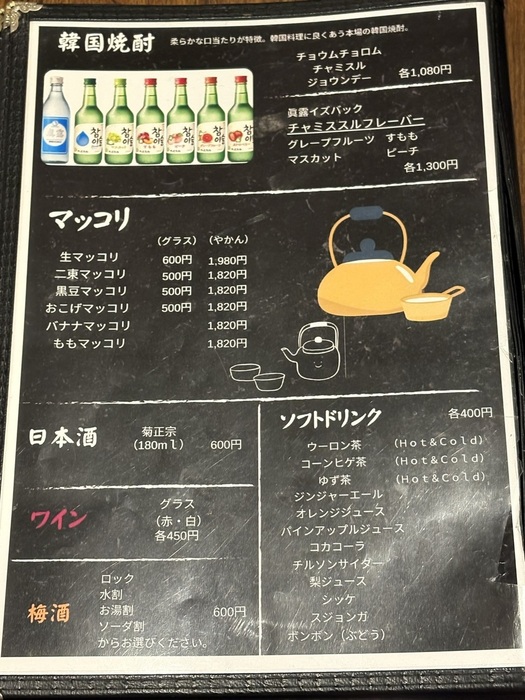 韓国焼酎
柔らかな口当たりが特徴。韓国料理に良くあう本場の韓国焼酎。
チョウムチョロム
チャミスル
ジョウンデー 各1,080円
眞露イズバック
チャミススルフレーバー
グレープフルーツ すもも
マスカット ピーチ
各1,300円
マッコリ
（グラス） （やかん）
生マッコリ 600円 1,980円
二東マッコリ 500円 1,820円
黒豆マッコリ 500円 1,820円
おこげマッコリ 500円 1,820円
バナナマッコリ 1,820円
ももマッコリ 1,820円
日本酒
菊正宗
（180ｍｌ） 600円
ワイン
グラス
（赤・白）
各450円
梅酒
ロック
水割
お湯割
ソーダ割
からお選びください。
600円
ソフトドリンク 各400円
ウーロン茶 （Hot＆Cold）
コーンヒゲ茶 （Hot＆Cold）
ゆず茶 （Hot＆Cold）
ジンジャーエール
オレンジジュース
パインアップルジュース
コカコーラ
チルソンサイダー
梨ジュース
シッケ
スジョンガ
ポンポン（ぶどう）